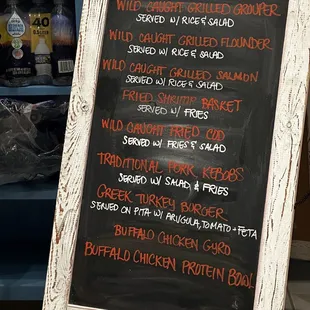 WILD CAUGHT GRILLED GROUPER
SERVED W/ RICE & SALAD
WILD CAUGHT GRILLED FLOUNDER
SERVED W/ RICE & SALAD
WILD CAUGHT GRILLED SALMON
SERVED W/ RICE & SALAD
FRIED SHRIMP BASKET
SERVED W/ FRIES
WILD CAUGHT FRIED COD
SERVED W/ FRIES & SALAD
TRADITIONAL PORK KEBOBS
SERVED W/ SALAD & FRIES
GREEK TURKEY BURGER
SERVED ON PITA W/ ARUGULA, TOMATO + FETA
BUFFALO CHICKEN GYRO
BUFFALO CHICKEN PROTEIN BOWL
40